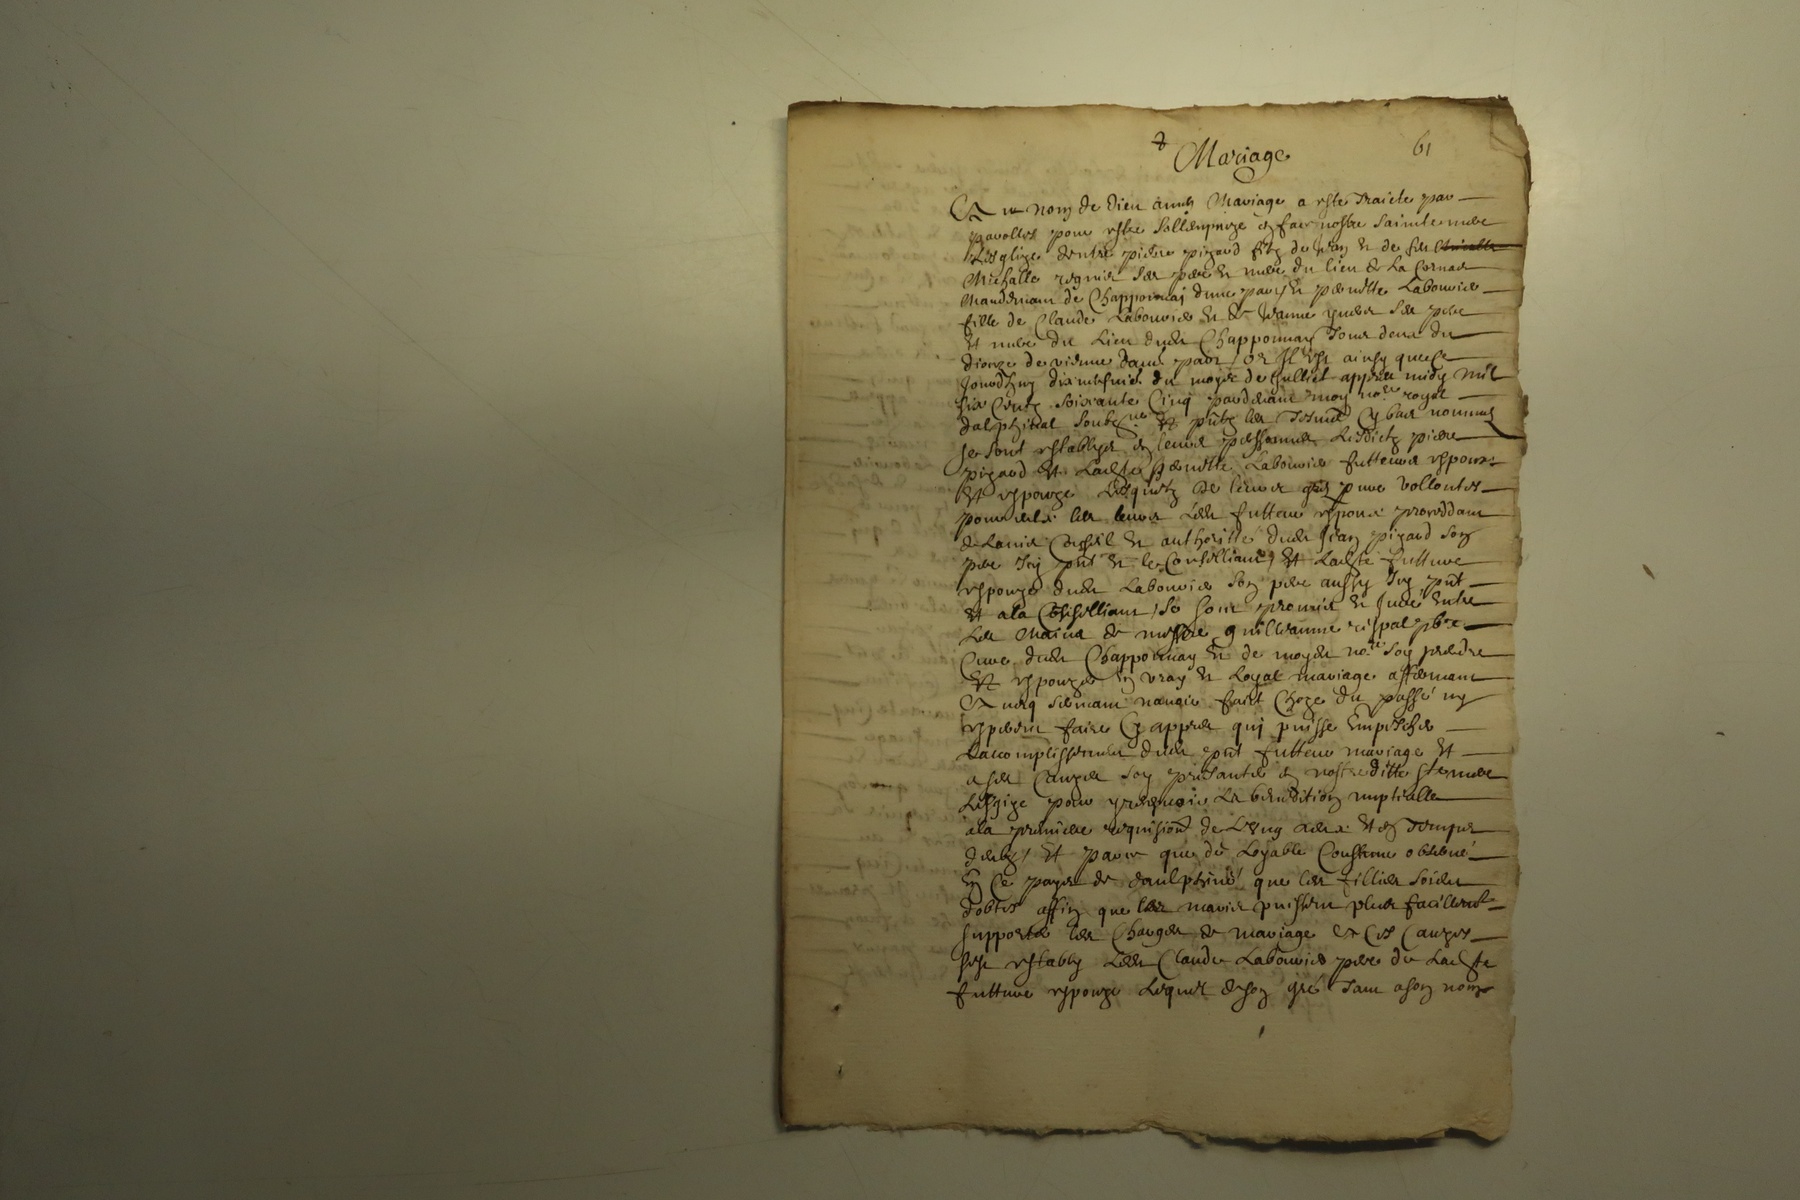 Mariage
61
Au nom de Dieu amen Mariage a este Traicte par
parolles pour estre sollempnize en face nostre Saincte mere
Lesglize dentre pierre pigard filz de Jean et de feu
Michalle regnier ses pere et mere du lieu de La
Mandement de Chapponnay dune part Et pernette Labouries
fille de Claude Labouries et de Jeanne ses pere
Et mere du Lieu dudit Chapponnay Tous deux du
dioceze de vienne dautre part / or Il est ainsy que ce
Jourdhuy du moys de Juillet appres midy Mil
six Centz soixante Cinq pardevant moy no.re royal
dalphinal soubz.ne Et pntz les tesmoins Cy bas nommes
se sont establys en leurs personnes Lesdictz pierre
pigard Et Ladicte pernette Labouries futteurs espoux
Et espouze Lesquelz de leurs gres pure vollontes
futteur espoux proceddant
de Ladvis Conseil et authoritte dudit Jean pigard son
pere Icy pnt Et le Conseilliant Et Ladicte futture
espouze dudit Labouries son pere aussy Icy pnt
Et a la Conseilliant / se sont promis et Jure entre
Les Mains de messire guillaume rispal pbre
Cure dudit Chapponnay Et de moydit no.re soy prendre
Et espouzer en vray Et Loyal mariage affermant
Avecq serment navoir faict Choze du passé ny
esperer faire Cy appres qui puisse Empescher
Laccomplissement dudit pnt futteur mariage Et
a ses Cauzes soy presanter en nostreditte Ste mere
Lesglize pour y recepvoir La benediction nuptialle
a la premiere requision de Lung deux Et en temps
/ Et parce que de Loyable Coustume observé
En Ce pays de daulphiné que les filles soient
dottes affin que les maris puissent plus facillement
supporter les Charges de mariage A Ces Cauzes
sest estably Ledit Claude Labouries pere de Ladicte
futture espouze Lequel de son gré Tant a son nom